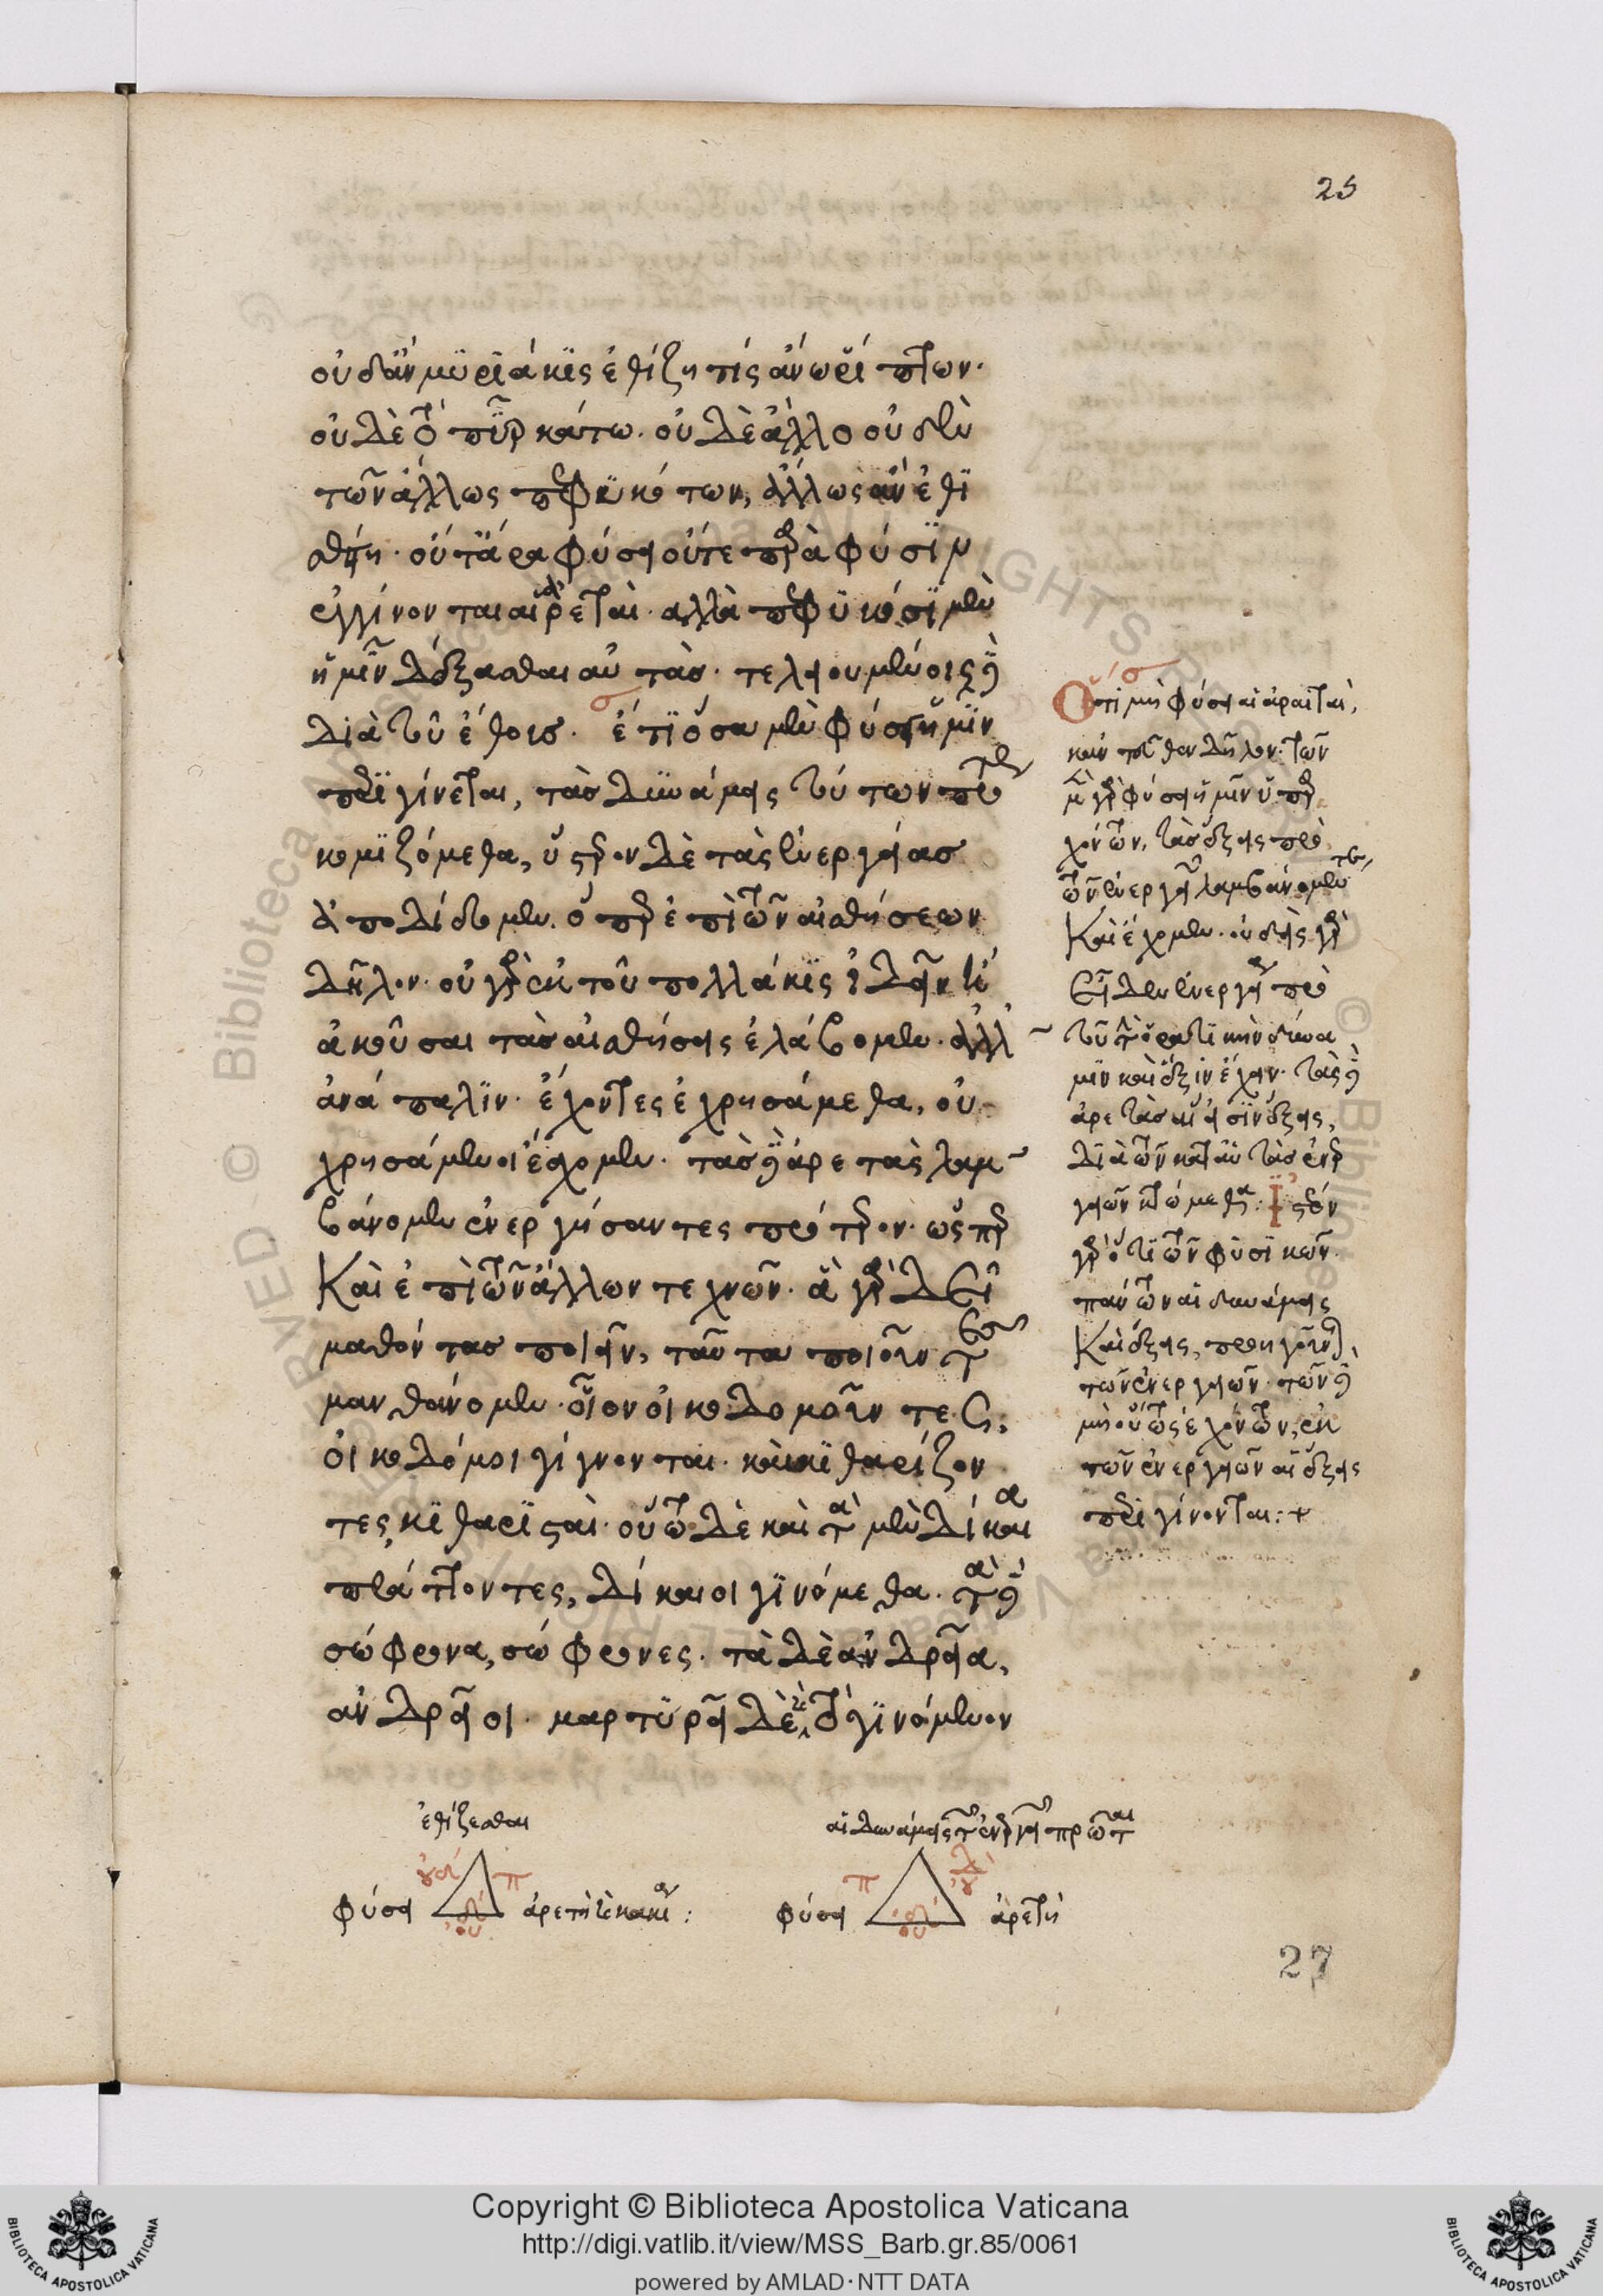 25
οὐδ' ἂν μυριάκις ἐθίζῃ τίς ἄνω ῥίπτων.
οὐδὲ τὸ πῦρ κάτω. οὐδὲ ἄλλο οὐδὲν
τῶν ἄλλως πεφυκότων, ἄλλως ἂν ἐθι
σθῇ. οὔτ' ἄρα φύσει οὔτε παρὰ φύσιν
ἐγγίνονται αἱ ἀρεταὶ. αλλὰ πεφυκόσι μὲν
ἡμῖν δέξασθαι αὐτὰσ. τελειουμένοις δὲ
διὰ τοῦ ἔθουσ. ἔτι ὅσα μὲν φύσει ἡμῖν
παραγίνεται, τὰσ δυνάμεις τούτων πρότερον
κομιζόμεθα, ὕστερον δὲ τὰς ἐνεργείασ
ἀποδίδομεν. ὅπερ ἐπὶ τῶν αἰσθήσεων
δῆλον. οὐ γὰρ ἐκ τοῦ πολλάκις ἰδεῖν ἢ
ἀκοῦσαι τὰσ αἰσθήσεις ἐλάβομεν. ἀλλ'
ἀνάπαλιν. ἔχοντες ἐχρησάμεθα, οὐ
χρησάμενοι ἔσχομεν. τὰσ δὲ ἀρετὰς λαμ
βάνομεν ἐνεργήσαντες πρότερον. ὥσπερ
καὶ ἐπὶ τῶν ἄλλων τεχνῶν. ἃ γὰρ δεῖ
μαθόντασ ποιεῖν, ταῦτα ποιοῦντες
μανθάνομεν. οἷον οἰκοδομοῦντες,
οἰκοδόμοι γίγνονται. καὶ κιθαρίζον
τες, κιθαρισταὶ. οὕτω δὲ καὶ τὰ μὲν δίκαια
πράττοντες, δίκαιοι γινόμεθα. τὰ δὲ
σώφρονα, σώφρονες. τὰ δὲ ἀνδρεῖα,
ἀνδρεῖοι. μαρτυρεῖ δὲ καὶ τὸ γινόμενον
Ὅτι μὴ φύσει αἱ ἀρεταὶ,
τῶν
μὲν γὰρ φύσει ἡμῖν ὑπαρ
χόντων, τὰσ ἕξεις πρὸ
τῶν ἐνεργειῶν λαμβάνομεν
καὶ ἔχομεν. οὐδεὶς γὰρ
τὰς δὲ
ἀρετὰσ
γειῶν κτώμεθα: Ἰστέον
γὰρ ὅτι τῶν φυσικῶν
πάντων αἱ δυνάμεις
καὶ ἕξεις, προηγοῦνται
τῶν ἐνεργειῶν. τῶν δὲ
μὴ οὕτως ἐχόντων, ἐκ
τῶν ἐνεργειῶν αἱ ἕξεις
παραγίνονται: +
ἐθίζεσθαι
φύσει ἀρετὴ κακία:
αἱ δυνάμεις τῶν ἐνεργειῶν πρῶται
φύσει ἀρετὴ
27
Copyright © Biblioteca Apostolica Vaticana
http://digi.vatlib.it/view/MSS_Barb.gr.85/0061
powered by AMLAD·NTT DATA